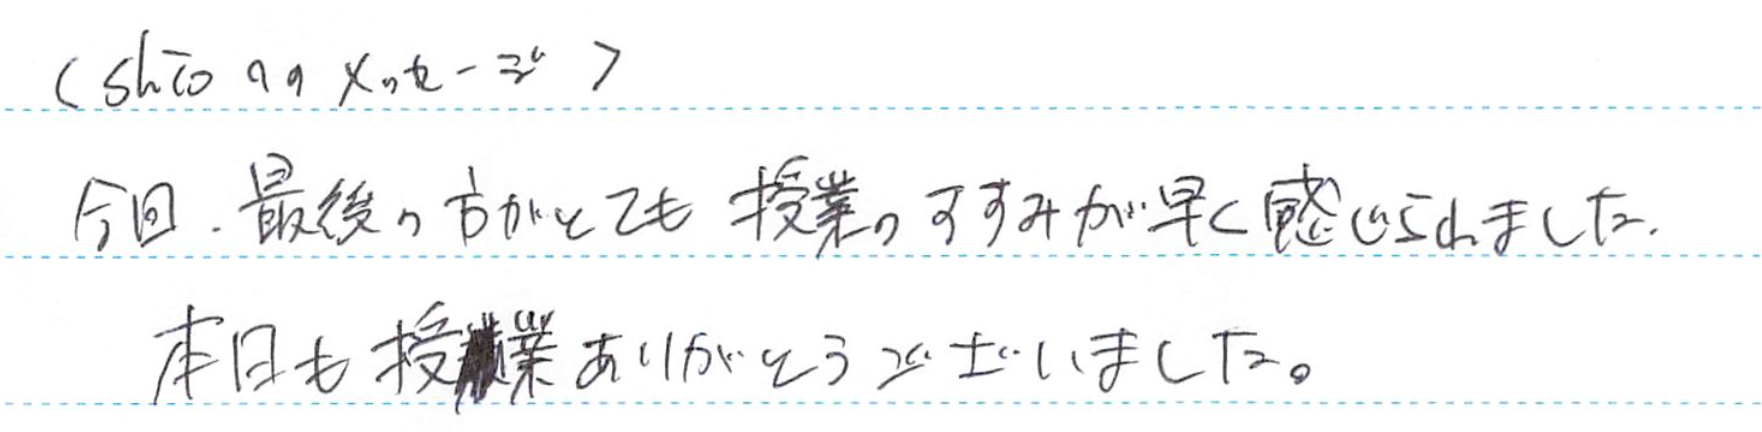 〈shioへのメッセージ〉
今回、最後の方がとても授業のすすみが早く感じられました。
本日も授業ありがとうございました。